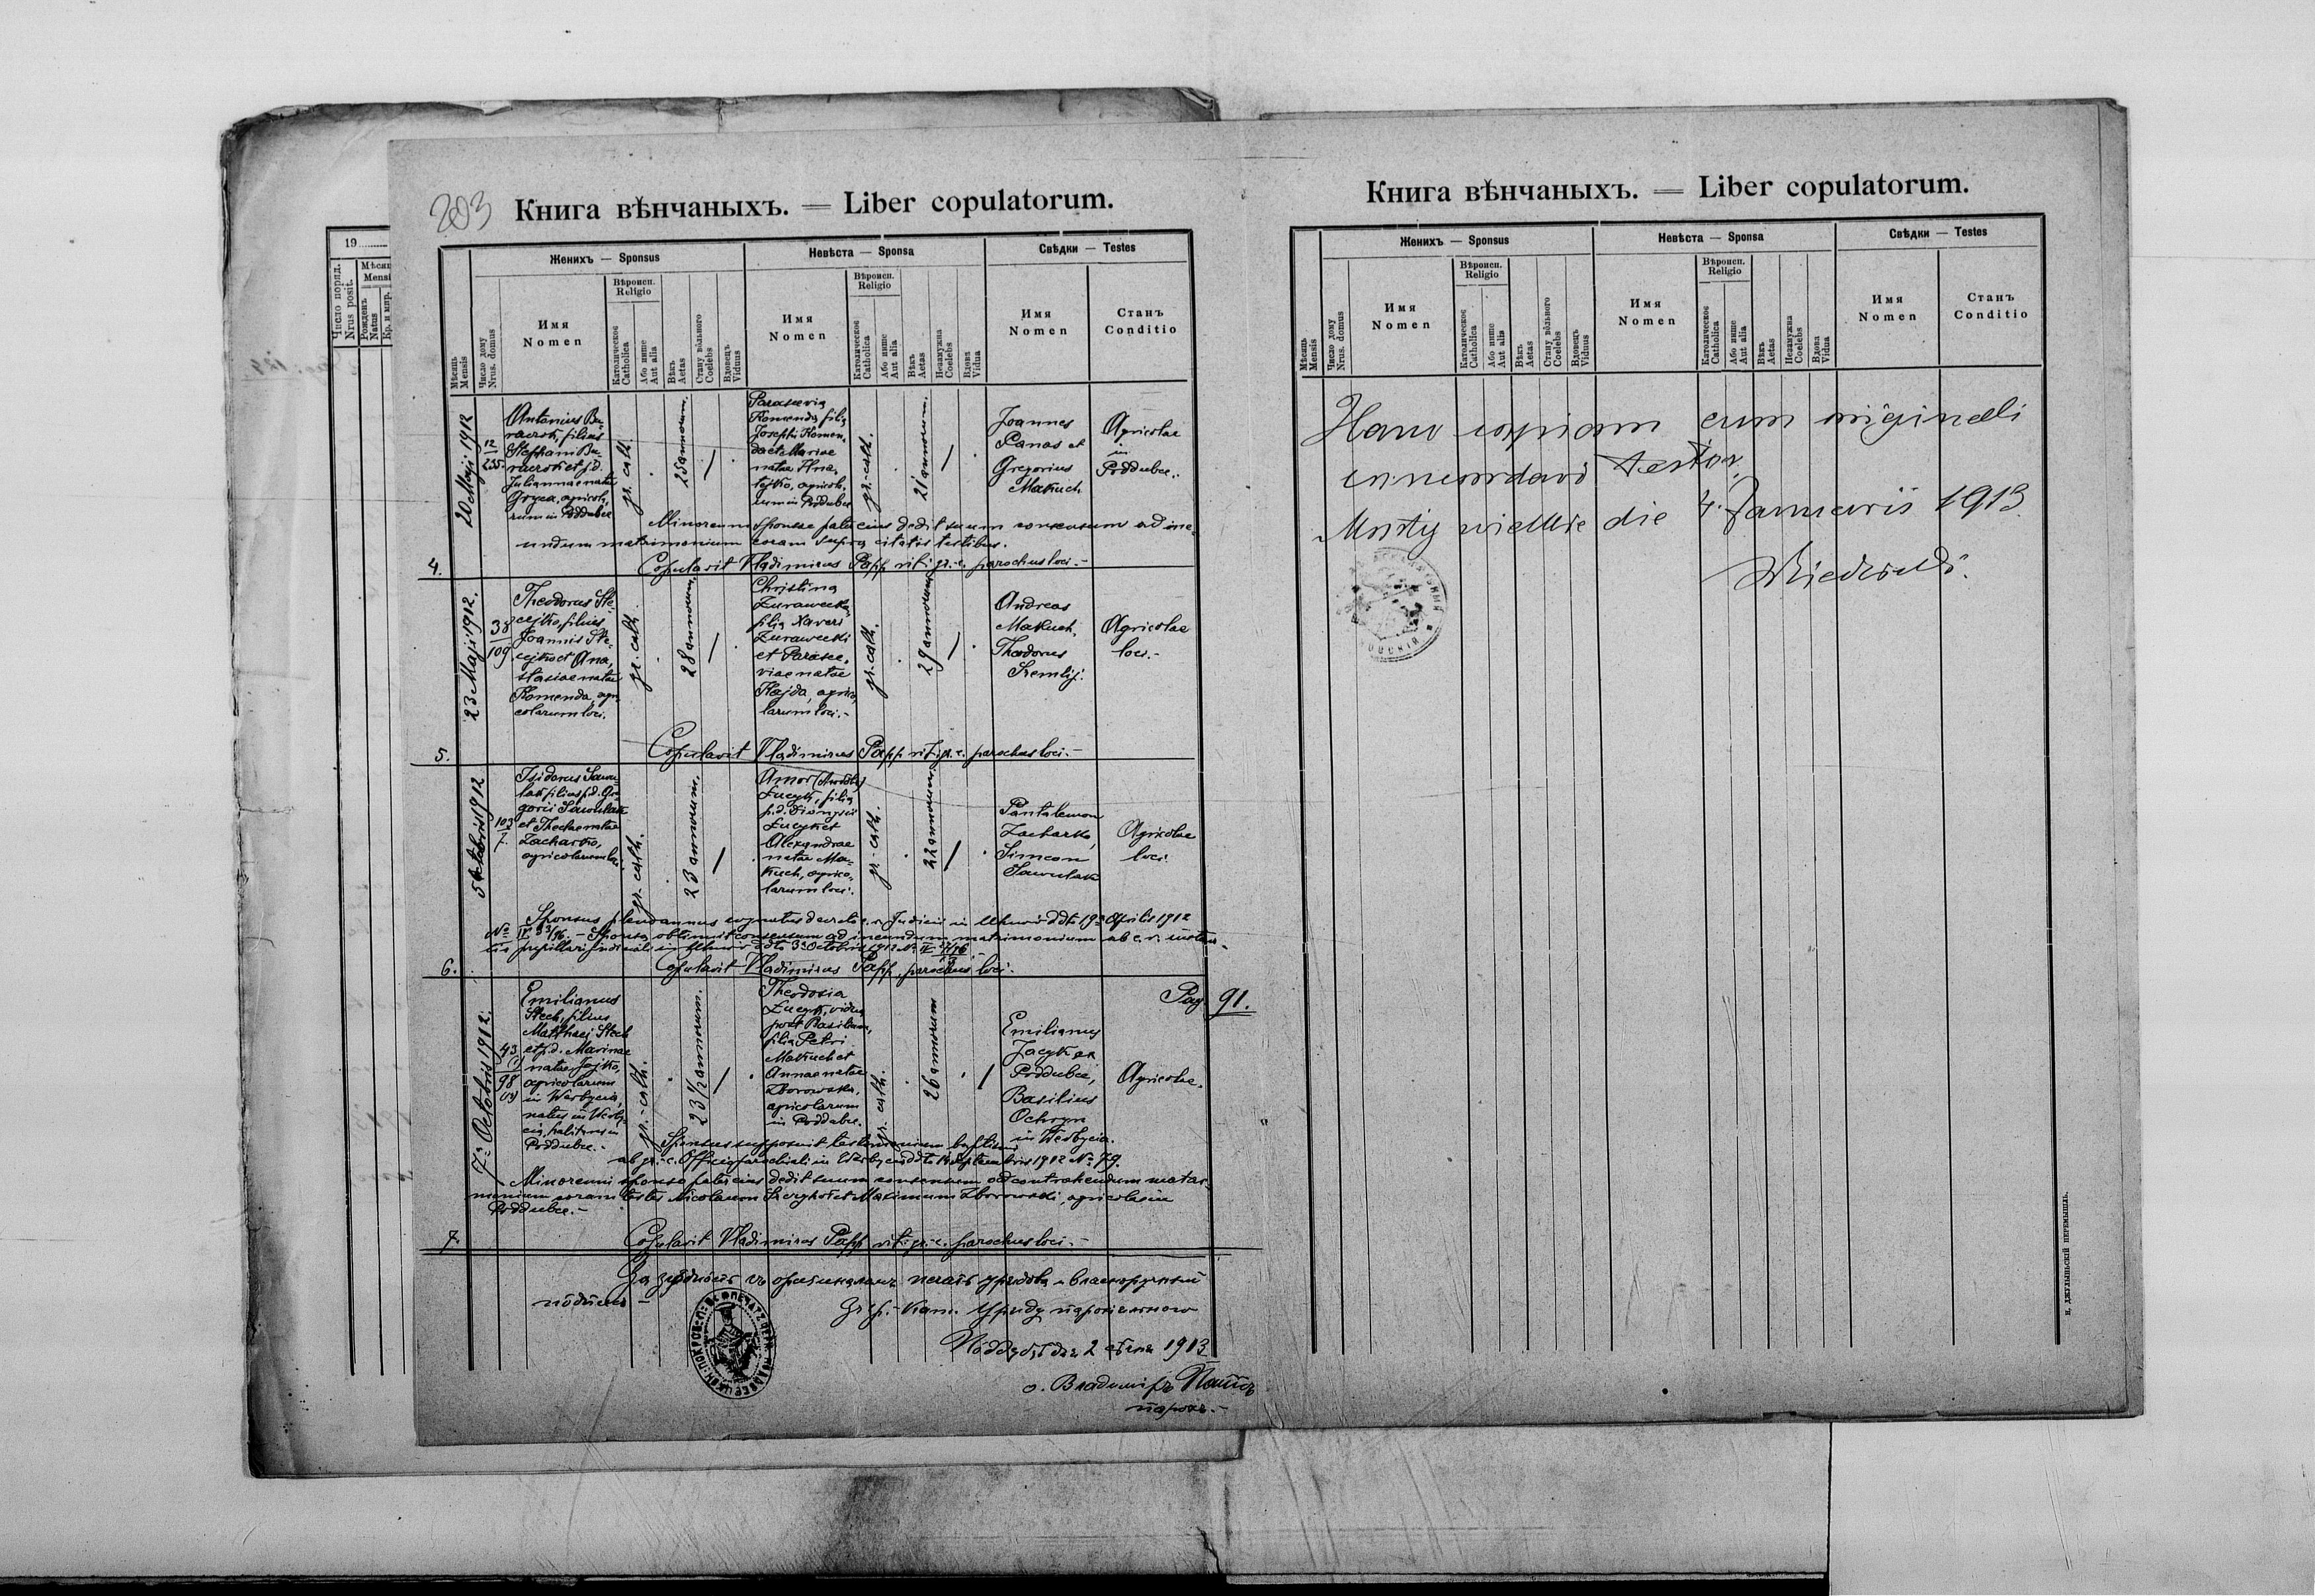 203
Книга вѣнчаныхъ. — Liber copulatorum.
19
Число поряд.
Nrus posit.
Рожденъ
Natus
Мѣсяць
Mensis
Число дому
Nrus. domus
Женихъ — Sponsus
Имя
Nomen
Вѣроисп.
Religio
Католическое
Catholica
Або инше
Aut alia
Вѣкъ
Aetas
Стану вôльного
Coelebs
Вдовецъ
Viduus
Невѣста — Sponsa
Имя
Nomen
Вѣроисп.
Religio
Католическое
Catholica
Або инше
Aut alia
Вѣкъ
Aetas
Незамужна
Coelebs
Вдова
Vidua
Свѣдки — Testes
Имя
Nomen
Станъ
Conditio
4.
20 Maji 1912
12
235
Antonius Bu-
raczok, filius
Stephani Bu-
raczok et p.d.
Juliannae natae
Gryca, agricola-
rum in Poddubce
gr. cath.
25 annorum.
Parascevia
Komenda filia
Josephi Komen-
da et Mariae
natae Hna-
tejko, agricola-
rum in Poddubce
gr.-cath.
21 annorum.
Joannes
Panas et
Gregorius
Makuch
Agricolae
in
Poddubce.
Minorenni sponsae pater eius dedit suum consensum ad ine-
undum matrimonium coram supra citatis testibus.
Copulavit Vladimirus Papp rit. gr. c. parochus loci.-
5.
23 Maji 1912.
38
109
Theodorus Ste-
cejko, filius
Joannis Ste-
cejko et Ana-
stasiae natae
Komenda, agri-
colarum loci.
gr. cath.
28 annorum.
Christina
Zurawecka
filia Xaveri
Zurawecki
et Parasce-
viae natae
Hajda, agrico-
larum loci.-
gr. cath.
29 annorum
Andreas
Makuch,
Theodorus
Agricolae
loci.-
Copulavit Vladimirus Papp rit. gr. c. parochus loci.-
6.
5 Octobris 1912
103
7
Isidorus Sawu-
lak filius p.d. Gre-
gorii Sawulak
et Theclae natae
Zacharko,
agricolarum loci
gr. cath.
23 annorum.
Łucyk, filia
p.d. Dionysii
Łucyk et
Alexandrae
natae Ma-
kuch, agrico-
larum loci.
gr. cath.
22 annorum
Pantalemon
Zacharko,
Simeon
Sawulak
Agricolae
loci.
Judicii in Uhnów ddto 19 Aprilis 1912
Sponsa obtinuit consensum ad ineundum matrimonium ab c. r.
pupillari judiciali in Uhnów ddto 3 Octobris 1912 No
Copulavit Vladimirus Papp, parochus loci.
7.
7 Octobris 1912.
43
98
Emilianus
Stech, filius
Matthaei Stech
et p.d. Marinae
natae Fejko,
agricolarum
in Werbycia,
natus in Werby-
cia, habitans in
Poddubce.-
gr.-cath.
23 1/2 annorum.
Theodosia
Łucyk, vidua
post Basilium,
filia Petri
Makuch et
Annae natae
Zborowska,
agricolarum
in Poddubce.
gr. cath.
26 annorum
Pag. 91.
Emilianus
Jacyk ex
Poddubce,
Basilius
Ochryn
in Werbycia.
Agricolae.
Sponsus supposuit testimonium baptismi
ab gr.-c. Officio parochiali in Werbycia ddto Septembris 1912 No 79.
Minorenni sponso pater eius dedit suum consensum ad contrahendum matri-
monium coram testes Nicolaum et Maximum Zborowski, agricolis in
Poddubce.-
Copulavit Vladimirus Papp rit. gr.-c. parochus loci.-
За згôднôсть съ оригиналомъ печать урядова и власноручный
пôдписъ —
гр.-кат. Уряду парохіяльного
Пôддубцѣ дня 2 сѣчня 1913
о. Владимиръ Паппъ
парохъ.-
Книга вѣнчаныхъ. — Liber copulatorum.
Мѣсяць
Mensis
Число дому
Nrus. domus
Женихъ — Sponsus
Имя
Nomen
Вѣроисп.
Religio
Католическое
Catholica
Або инше
Aut alia
Вѣкъ
Aetas
Стану вôльного
Coelebs
Вдовецъ
Viduus
Невѣста — Sponsa
Имя
Nomen
Вѣроисп.
Religio
Католическое
Catholica
Або инше
Aut alia
Вѣкъ
Aetas
Незамужна
Coelebs
Вдова
Vidua
Свѣдки — Testes
Имя
Nomen
Станъ
Conditio
Hanc copiam cum originali
concordare testor
Mosty wielkie die 4. Januarii 1913
И. ДЖУЛЫНЬСКІЙ ПЕРЕМЫШЛЬ.